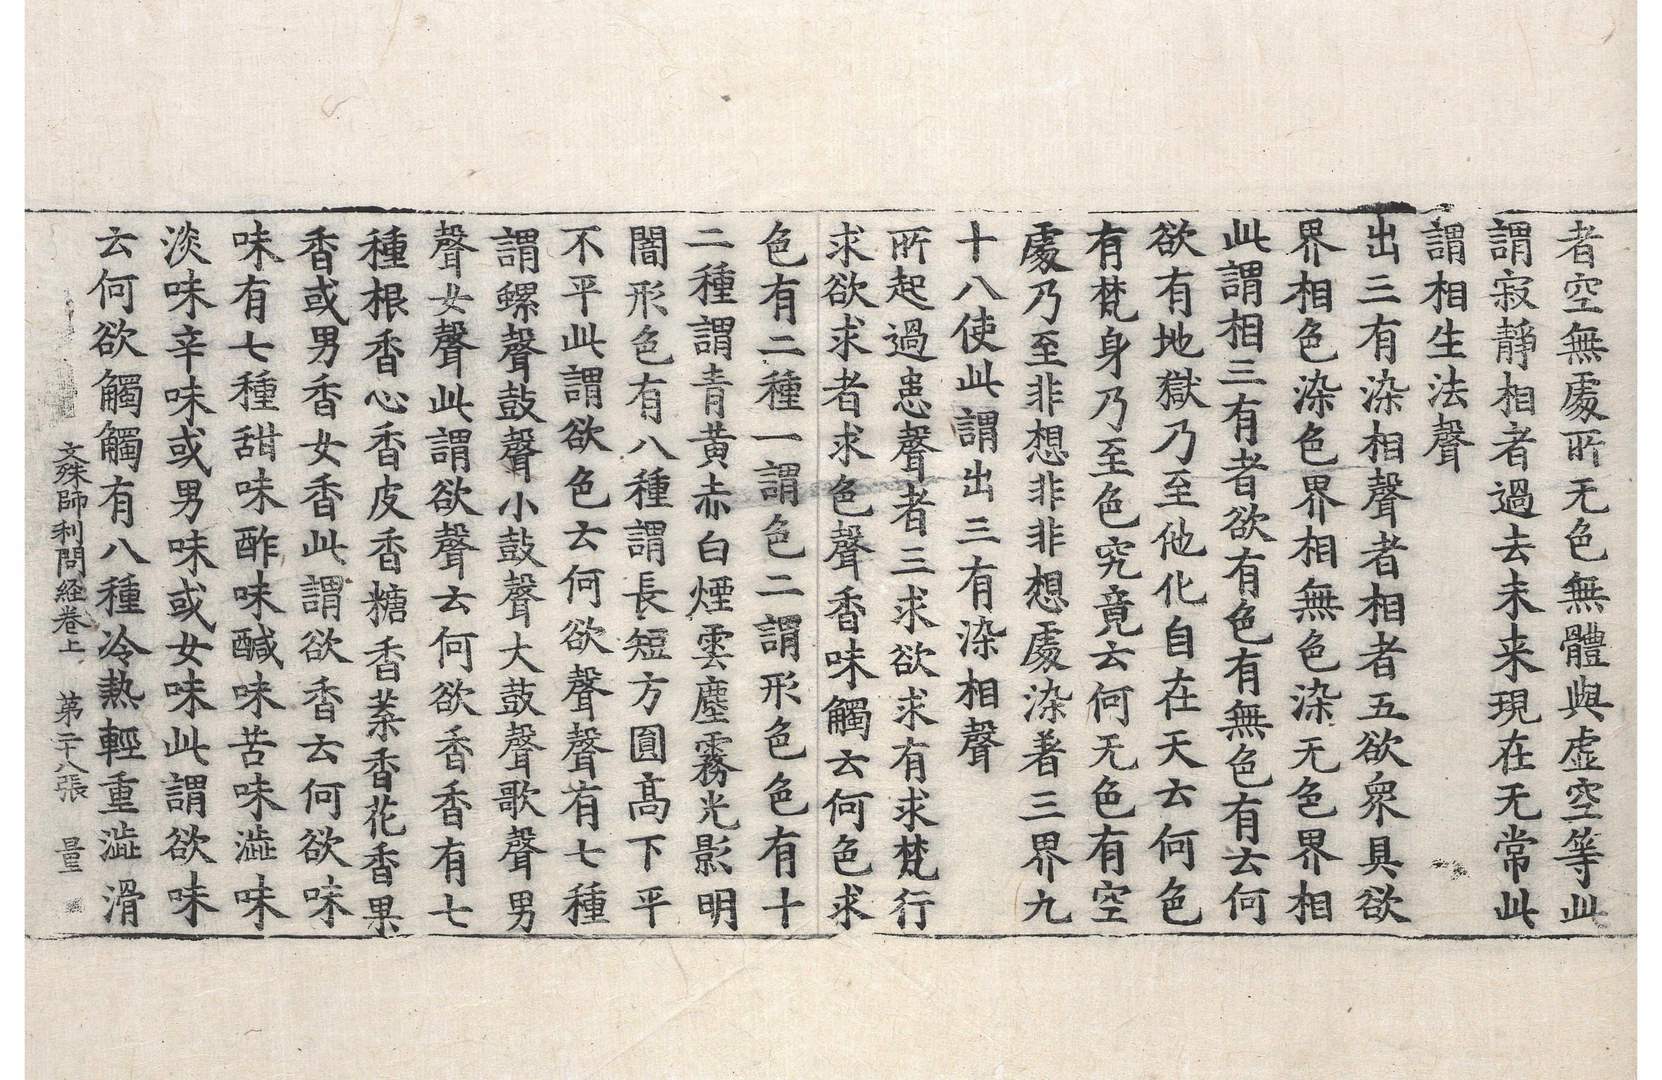 者空無處所无色無體與虛空等此
謂寂靜相者過去未来現在无常此
謂相生法聲
出三有染相聲者相者五欲衆具欲
界相色染色界相無色染无色界相
此謂相三有者欲有色有無色有云何
欲有地獄乃至他化自在天云何色
有梵身乃至色究竟云何无色有空
處乃至非想非非想處染著三界九
十八使此謂出三有染相聲
所起過患聲者三求欲求有求梵行
求欲求者求色聲香味觸云何色求
色有二種一謂色二謂形色色有十
二種謂青黃赤白煙雲塵霧光影明
闇形色有八種謂長短方圓高下平
不平此謂欲色云何欲聲聲有七種
謂螺聲鼓聲小鼓聲大鼓聲歌聲男
聲女聲此謂欲聲云何欲香香有七
種根香心香皮香糖香葉香花香果
香或男香女香此謂欲香云何欲味
味有七種甜味酢味醎味苦味澁味
淡味辛味或男味或女味此謂欲味
云何欲觸觸有八種冷熱輕重澁滑
文殊師利問経卷上 苐二十八張 量